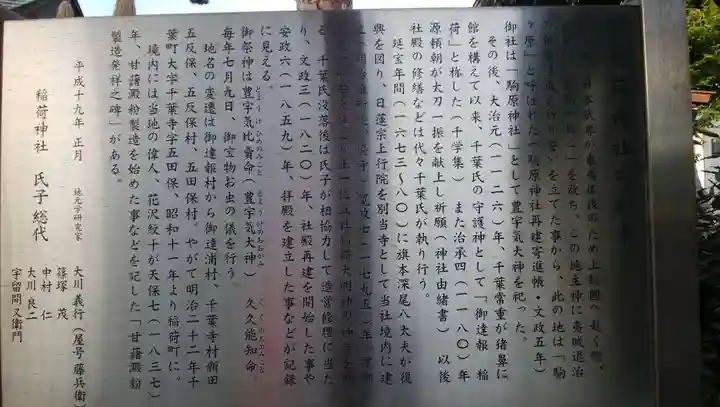 日本武尊が東夷征伐のため上総国へ赴く際、
」を放ち、この地主神に夷賊退治
を立てた事から、此の地は「駒
ヶ原」と呼ばれた(駒原神社再建寄進帳・文政五年)
御社は「駒原神社」として豊宇気大神を祀った。
その後、大治元(一一二六)年、千葉常重が猪鼻に
館を構えて以来、千葉氏の守護神として「御達報 稲
荷」と称した(千学集) また治承四(一一八〇)年
源頼朝が太刀一振を献上し祈願(神社由緒書) 以後
社殿の修繕などは代々千葉氏が執り行う。
延宝年間(一六七三~八〇)に旗本深尾八太夫が復
興を図り、日蓮宗上行院を別当寺として当社境内に建
七九五)年
る 千葉氏没落後は氏子が相協力して造営修理に当た
り、文政三(一八二〇)年、社殿再建を開始した事や
安政六(一八五九)年、拝殿を建立した事などが記録
に見える。
御祭神は豊宇気比売命(豊宇気大神) 久久能知命。
とようけひめのみこと とようけのおおかみ くくのちのみこと
毎年七月九日、御宝物お虫の儀を行う。
地名の変遷は御達報村から御達浦村、千葉寺村新田
五反保村、五反保村、五田保村。やがて明治二十二年千
葉町大字千葉寺字五田保、昭和十一年より稲荷町に。
境内には当地の偉人、花沢紋十が天保七(一八三七)
年、甘藷澱粉製造を始めた事などを記した「甘藷澱粉
製造発祥之碑」がある。
平成十九年 正月
地元学研究家 大川 義行(屋号 藤兵衛)
稲荷神社 氏子総代 篠塚 茂
中村 仁
大川 良二
宇留間 又衛門